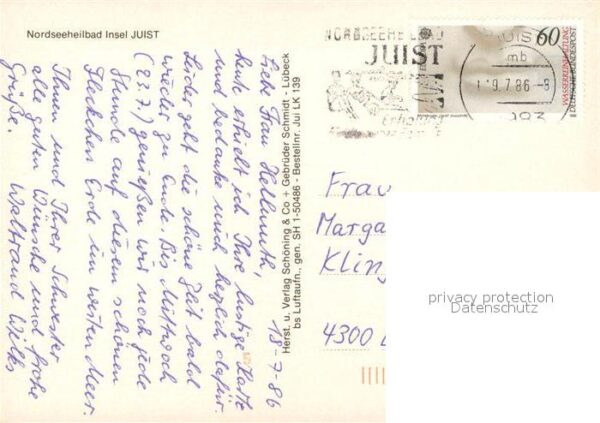 Nordseeheilbad Insel JUIST
18-7-86
Liebe Frau Hellmuth,
heute erhielt ich Ihre lustige Karte
und bedanke mich herzlich dafür.
Leider geht die schöne Zeit bald
wieder zu Ende. Bis Mittwoch
(23.7) genießen wir noch jede
Stunde auf diesem schönen
Fleckchen Erde im weiten Meer.
Ihnen und Ihrer Schwester
alle guten Wünsche und frohe
Grüße.
Waltraud Wilks
Herst. u. Verlag Schöning & Co + Gebrüder Schmidt - Lübeck
bs Luftaufn., gen. SH 1-50486 - Bestellnr. Jui LK 139
NORDSEEHEILBAD
JUIST
JUIST
mb
19.7.86-8
2983
60
WASSERREINHALTUNG
DEUTSCHE BUNDESPOST
Frau
Marga
Kling
4300
privacy protection
Datenschutz